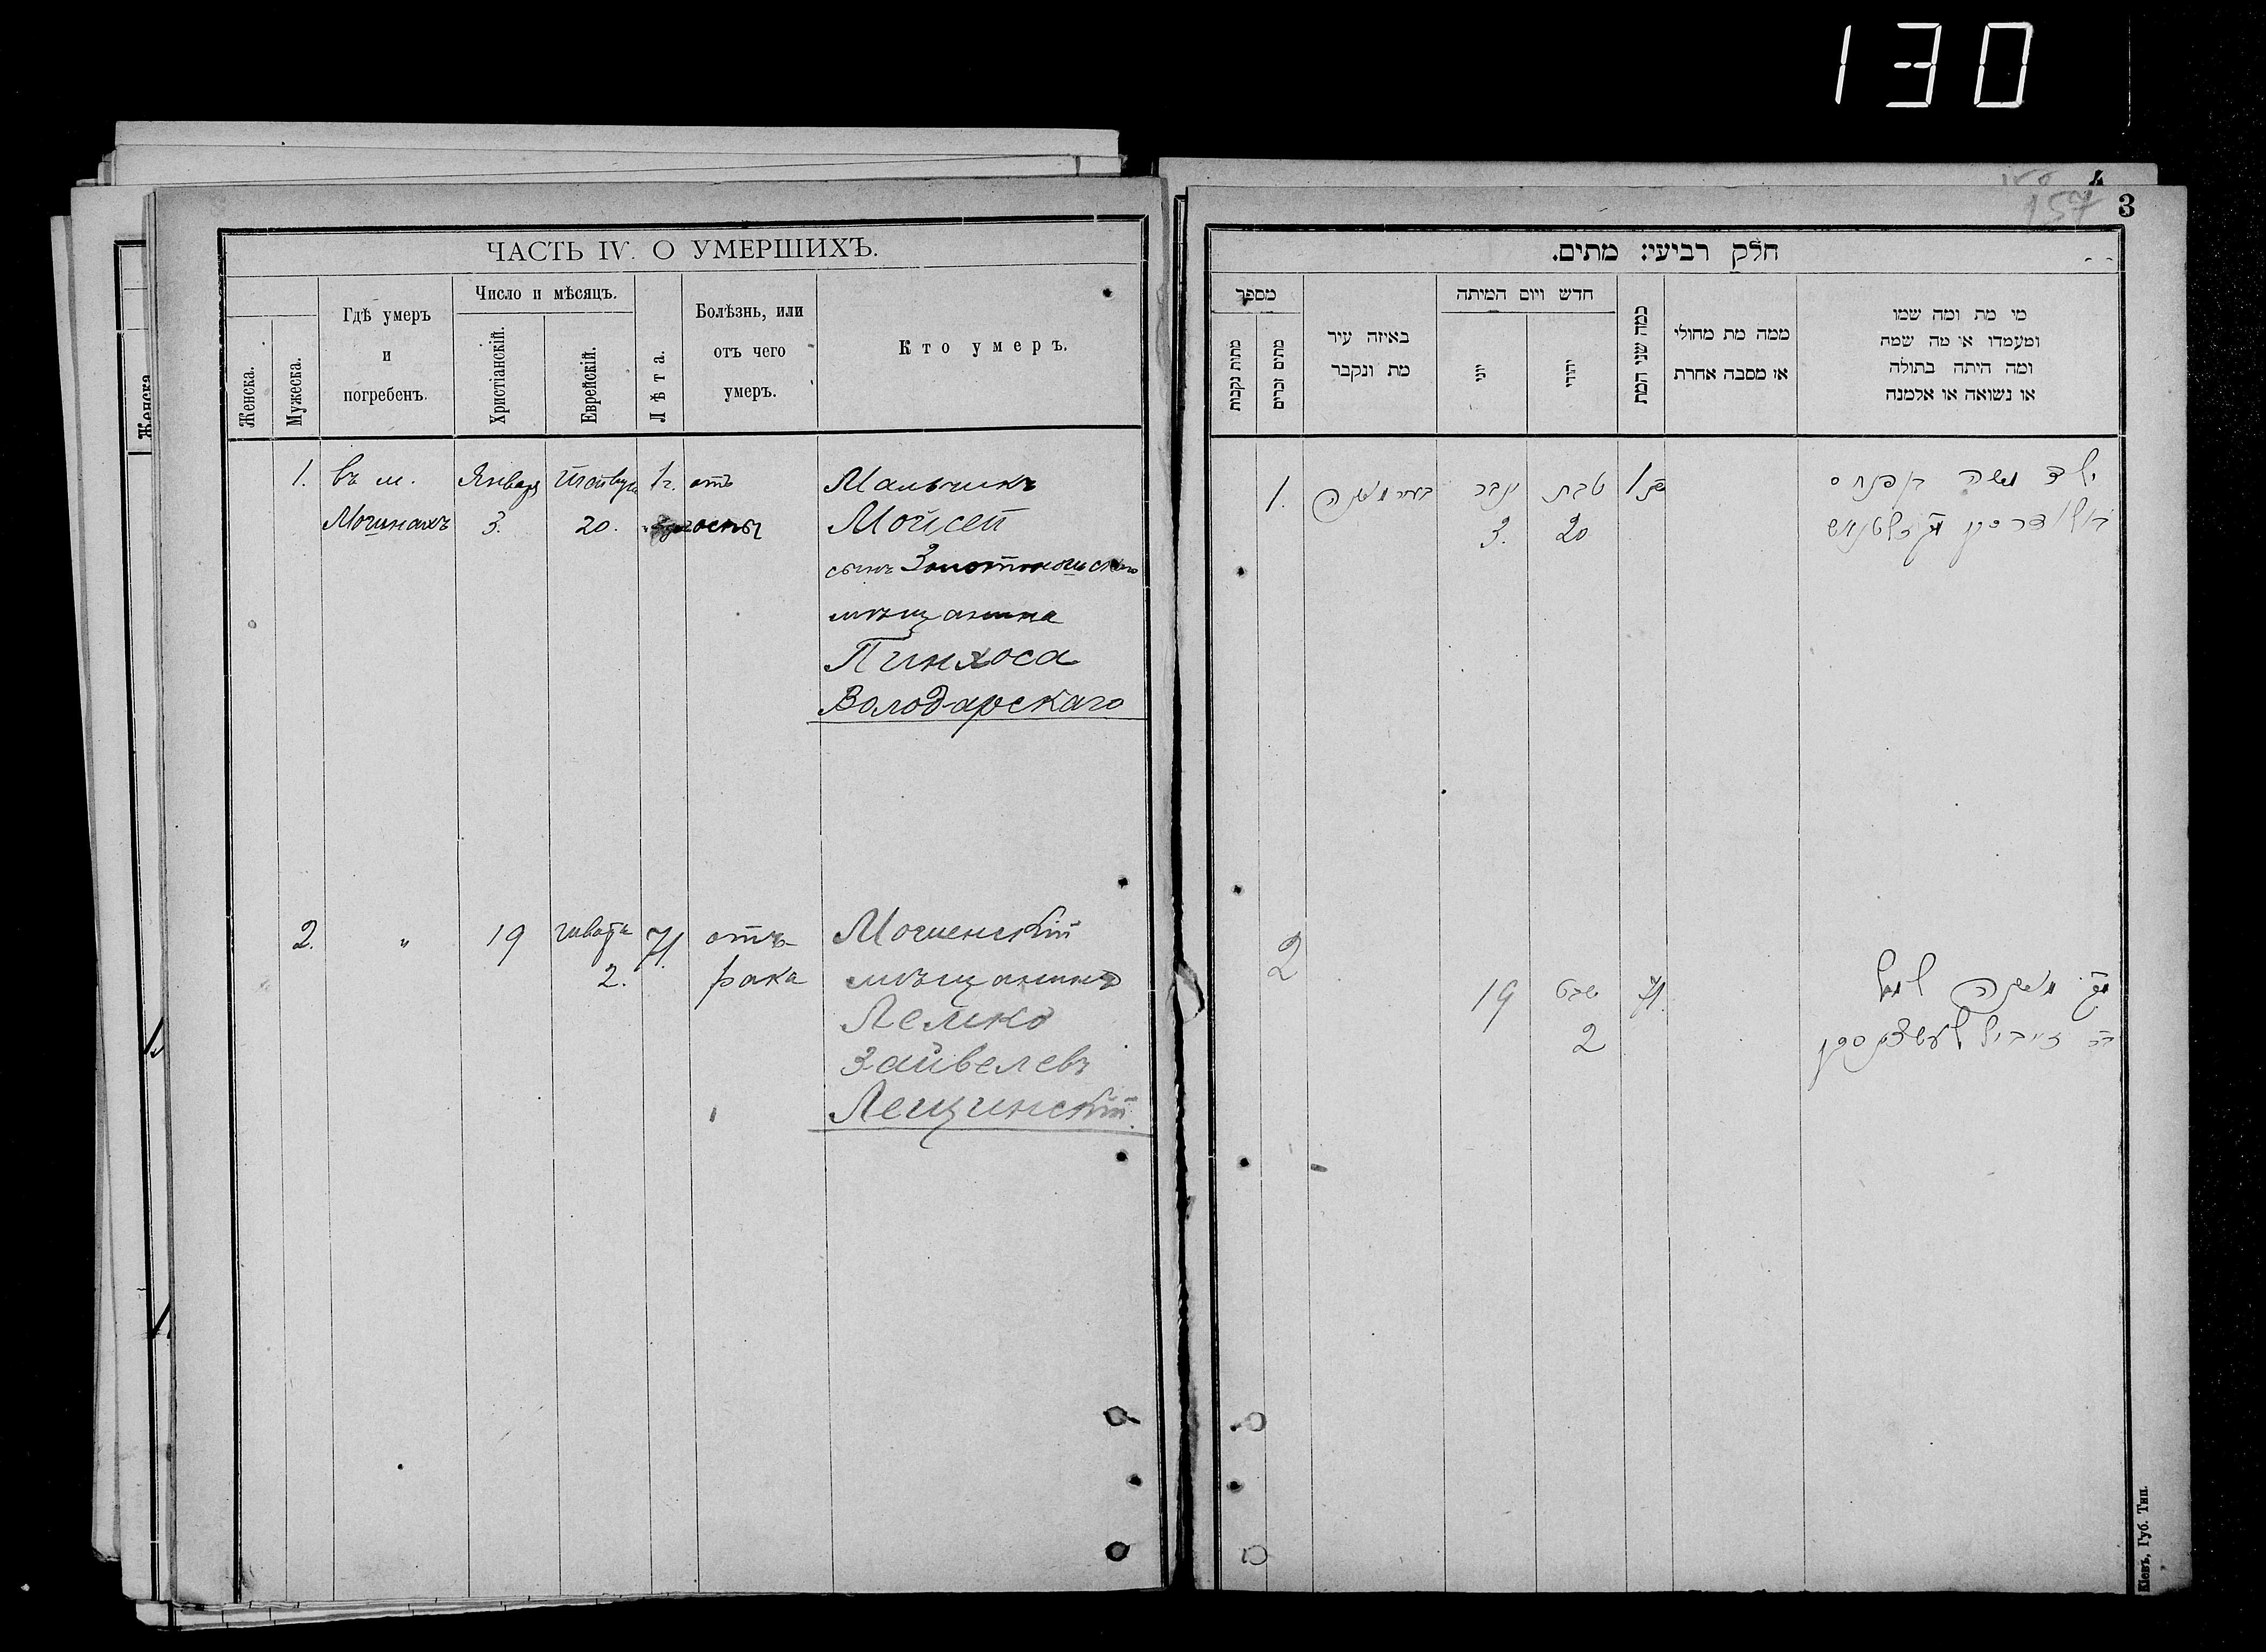 130
ЧАСТЬ IV. О УМЕРШИХЪ.
Женска.
Мужеска.
Гдѣ умеръ
и
погребенъ.
Число и мѣсяцъ.
Христіанскій.
Еврейскій.
Лѣта.
Болѣзнь, или
отъ чего
умеръ.
Кто умеръ.
1. въ м. Января 1 г. отъ Мальчикъ
Мошнахъ 3. 20. оспы Мойсей
сынъ Золотоношскаго
мѣщанина
Пинхоса
Володарскаго
2. " 19 шватa 71. отъ Мошенскій
2. рака мѣщанинъ
Лейко
Зайвелевъ
Лещинскій.
157
3
חלק רביעי: מתים.
מספר
מתות נקבות
מתים זכרים
באיזה עיר
מת ונקבר
חדש ויום המיתה
יוני
יהודי
כמה שני המת
ממה מת מחולי
או מסבה אחרת
מי מת ומה שמו
ומעמדו או מה שמה
ומה היתה בתולה
או נשואה או אלמנה
1. ינבר טבת 1 ילד משה פנחס
3. 20
2
19 שבט 71.
2
Кіевъ, Губ. Тип.